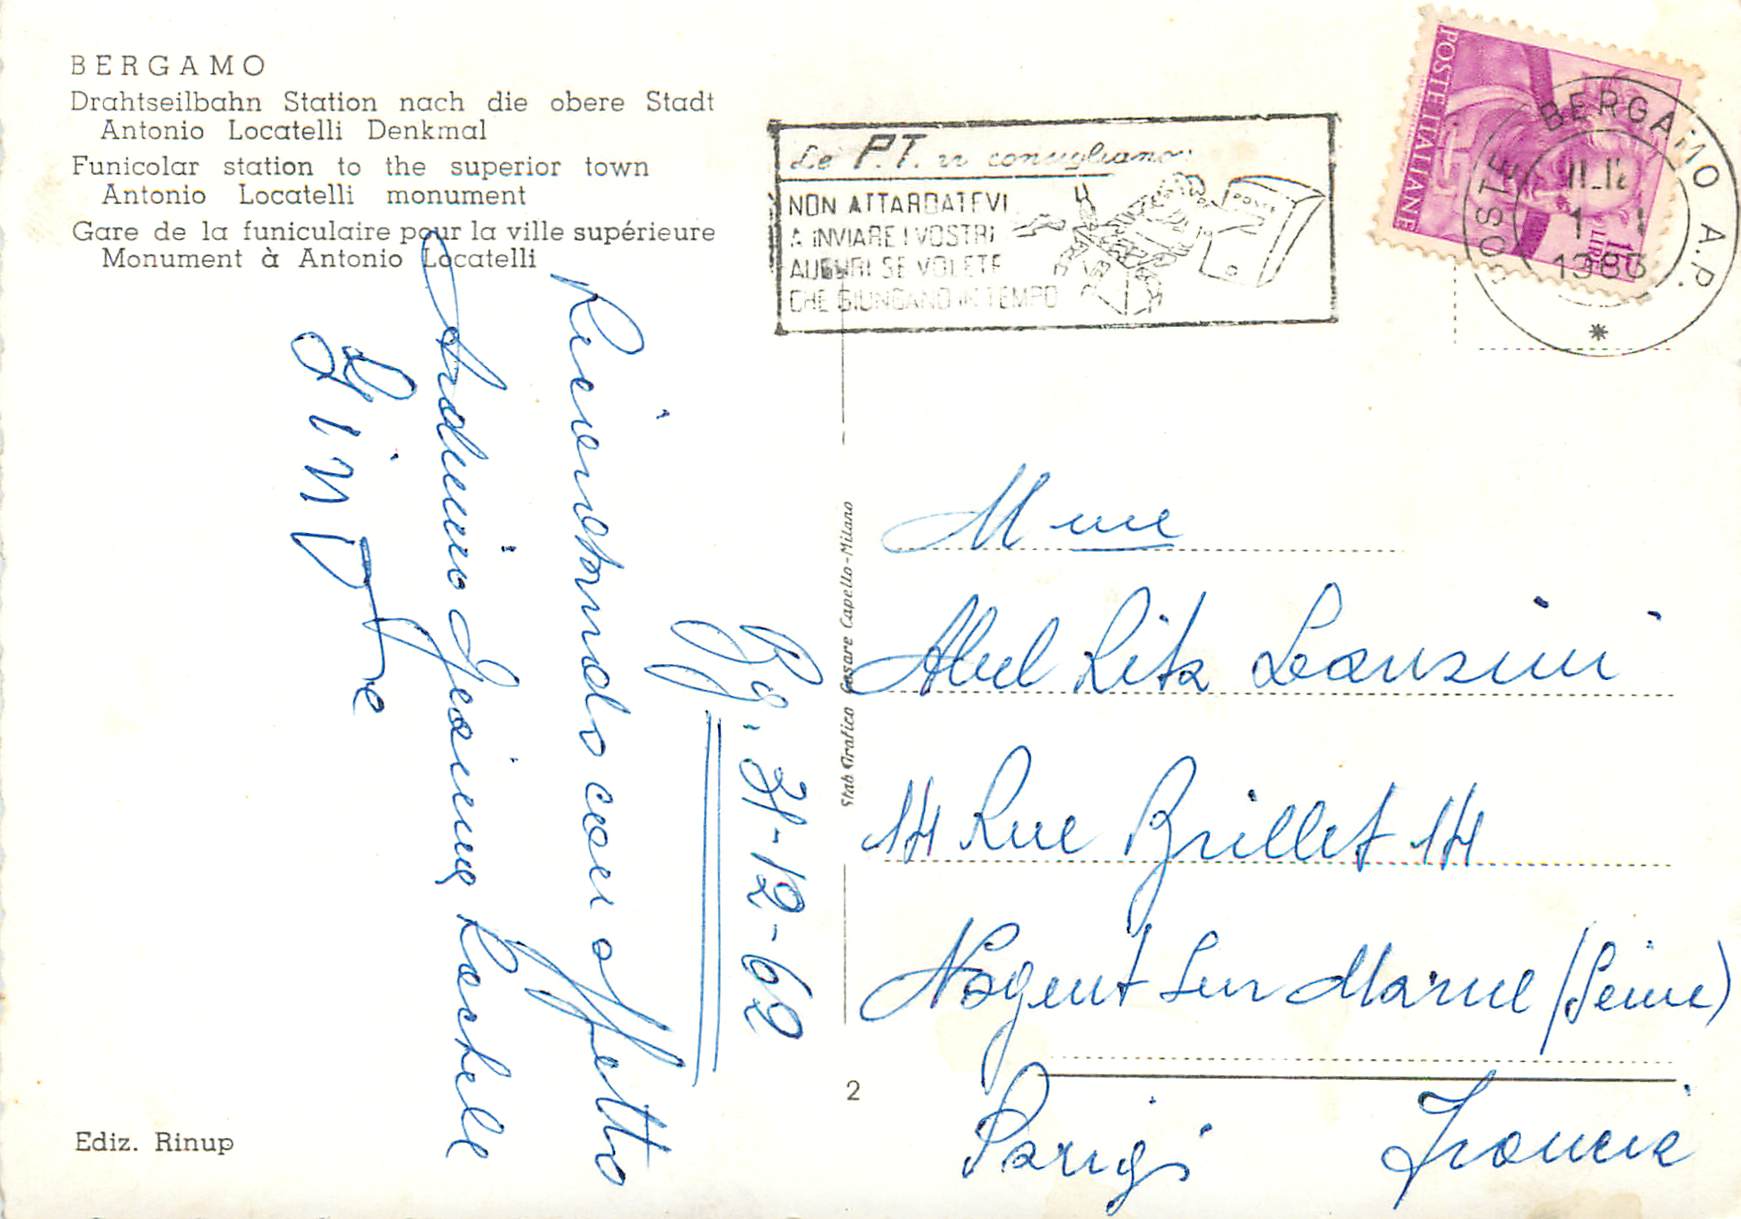 BERGAMO
Drahtseilbahn Station nach die obere Stadt
Antonio Locatelli Denkmal
Funicolar station to the superior town
Antonio Locatelli monument
Gare de la funiculaire pour la ville supérieure
Monument à Antonio Locatelli
Le P.T. vi consigliano:
NON ATTARDATEVI
A INVIARE I VOSTRI
AUGURI SE VOLETE
CHE GIUNGANO IN TEMPO
POSTE ITALIANE
15 LIRE
POSTE BERGAMO A.P.
1963
Bg. 31-12-62
Ricordando con affetto
Mme
Abel Rita
14 Rue Brillet 14
Nogent Sur Marne (Seine)
Parigi Francia
Stab Grafico Cesare Capello-Milano
2
Ediz. Rinup